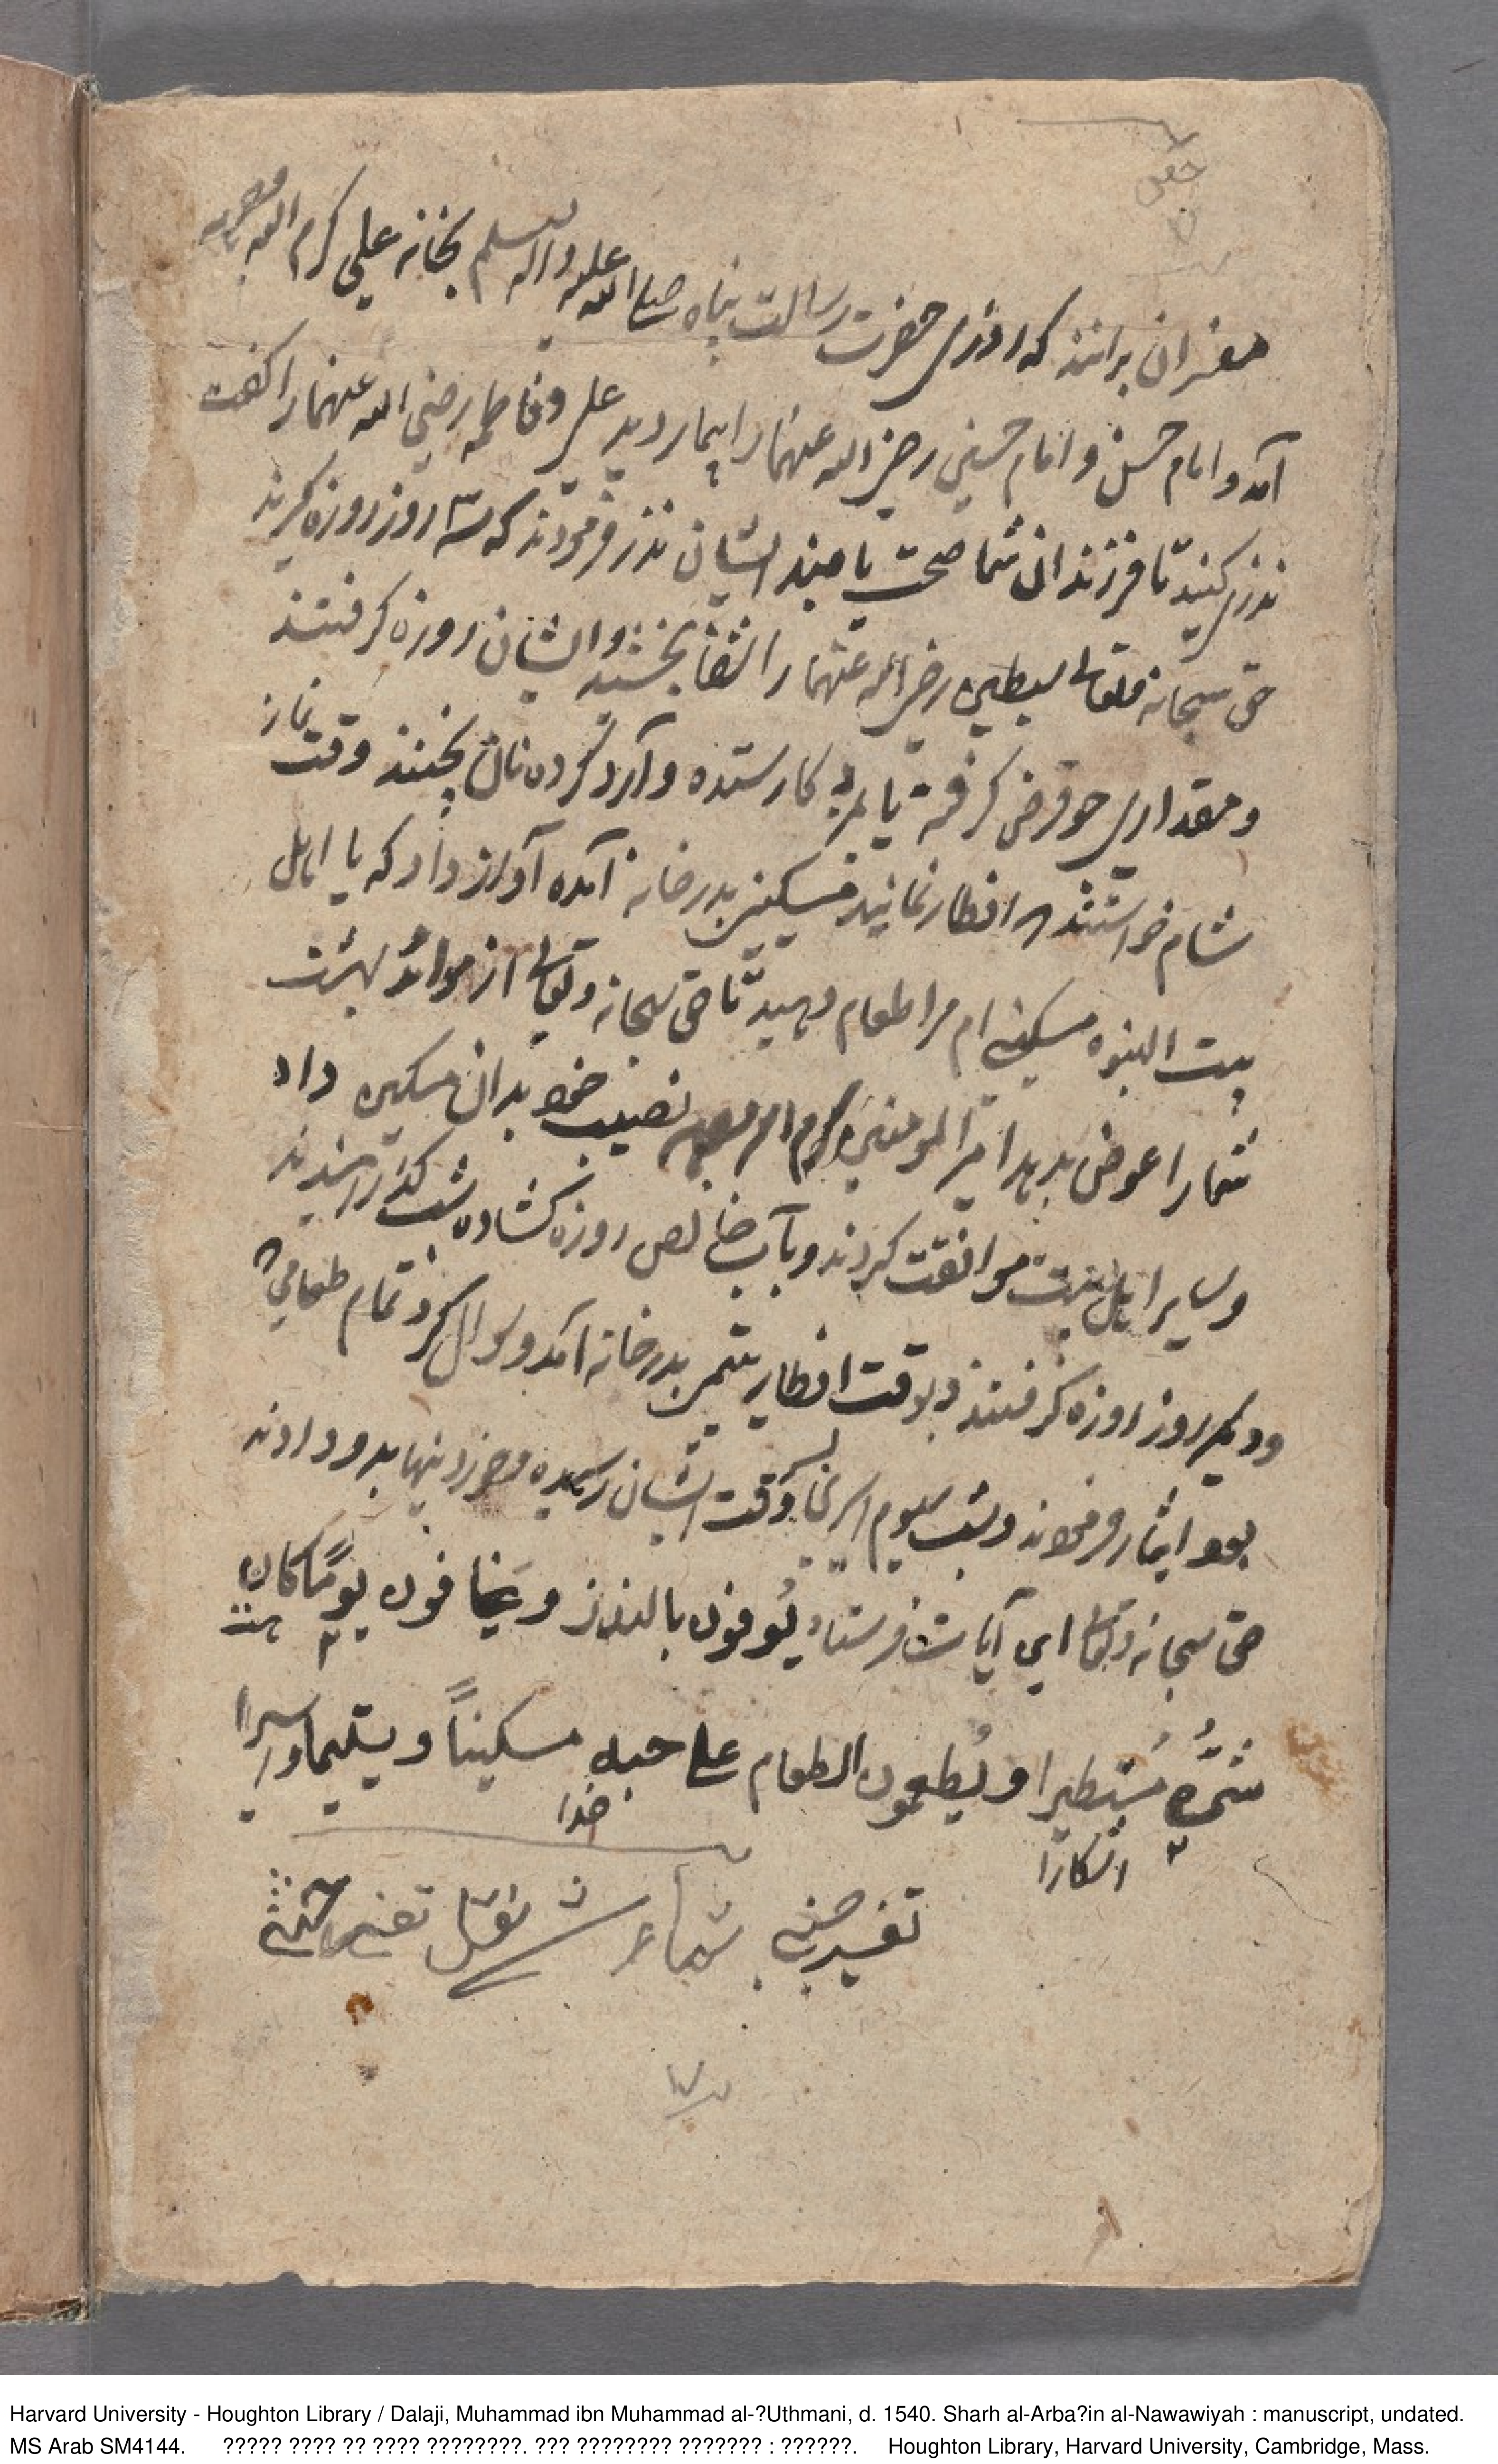 مفسران برانند که روزی حضرت رسالت پناه صلی الله علیه واله وسلم بخانه علی کرم الله وجهه
آمد و امام حسن و امام حسین رضی الله عنهما را بیمار دید علی و فاطمه رضی الله عنهما را گفت
نذری کنید تا فرزندان شما صحت یابند ایشان نذر فرمودند که سه روز روزه گیرند
حق سبحانه وتعالی سبطین رضی الله عنهما را شفا بخشید و ایشان روزه گرفتند
و مقداری جو قرض گرفته یا بمزد کار ستده و آرد کرده نان پختند وقت نماز
شام خواستند که افطار نمایند مسکینی بدر خانه آمده آواز داد که یا اهل
بیت النبوه مسکینی ام مرا طعام دهید تا حق سبحانه وتعالی از موائد بهشت
شما را عوض بدهد امیر المومنین کرم الله وجهه نصیب خود بدان مسکین داد
و سایر اهل بیت موافقت کردند و بآب خالص روزه گشاده شب گذرانیدند
و دیگر روز روزه گرفتند و بوقت افطار یتیمی بدر خانه آمد و سوال کرد تمام طعامی که
بود ایثار فرمودند و شب سیوم اسیری بوقت ایشان رسیده بدو دادند
حق سبحانه وتعالی این آیات فرستاد یُوفون بالنذر و یَخافون یومًا کان
شرُّه مُستطیرا و یُطعمون الطعام علی حبه مسکیناً و یتیما و اسیرا
اشکارا خدا
تفسیر حسینی نقل تفسیر حسینی